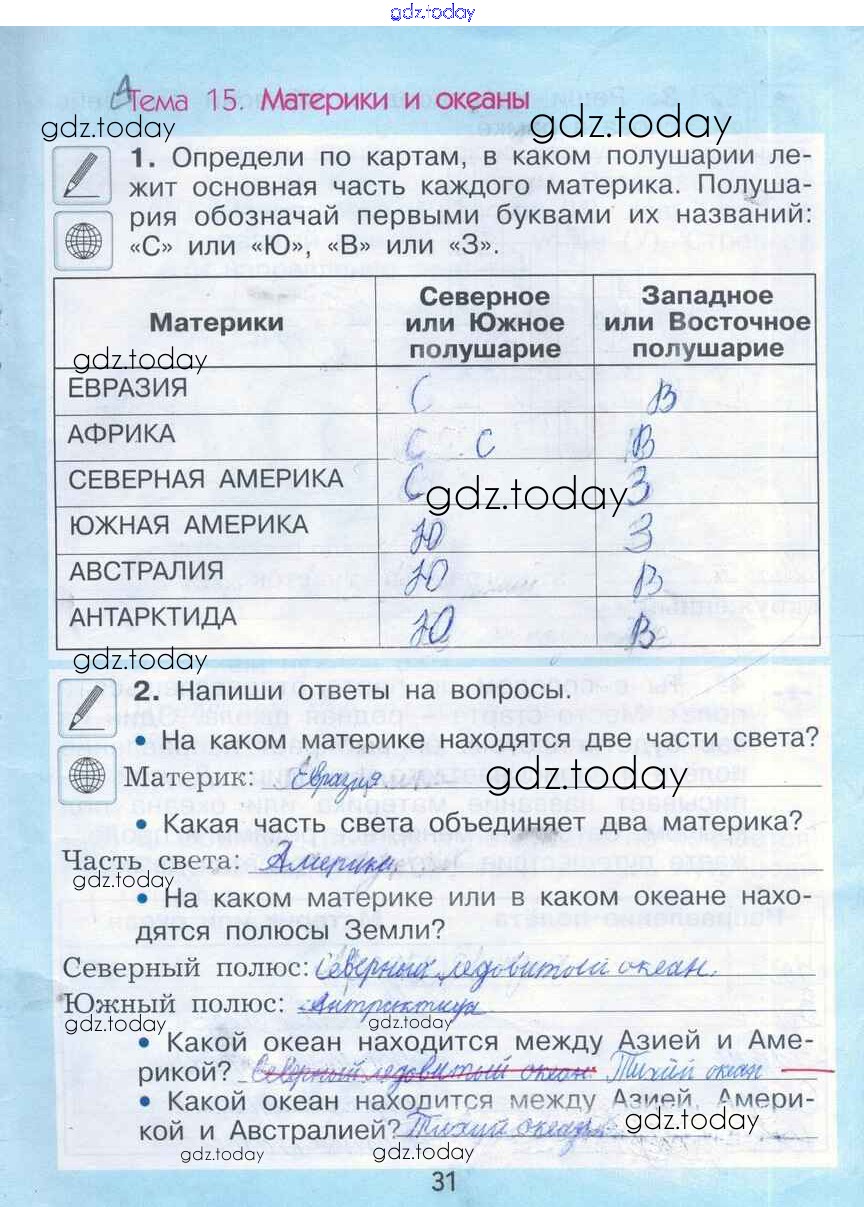 gdz.today
Тема 15. Материки и океаны
gdz.today gdz.today
1. Определи по картам, в каком полушарии ле-
жит основная часть каждого материка. Полуша-
рия обозначай первыми буквами их названий:
«С» или «Ю», «В» или «З».
Материки Северное или Южное полушарие Западное или Восточное полушарие
gdz.today
ЕВРАЗИЯ С В
АФРИКА С С В
СЕВЕРНАЯ АМЕРИКА С З
gdz.today
ЮЖНАЯ АМЕРИКА Ю З
АВСТРАЛИЯ Ю В
АНТАРКТИДА Ю В
gdz.today
2. Напиши ответы на вопросы.
• На каком материке находятся две части света?
Материк: Евразия gdz.today
• Какая часть света объединяет два материка?
Часть света: Америка
gdz.today
• На каком материке или в каком океане нахо-
дятся полюсы Земли?
Северный полюс: Северный ледовитый океан.
Южный полюс: Антрактида
gdz.today gdz.today
• Какой океан находится между Азией и Аме-
рикой? Северный ледовитый океан Тихий океан
• Какой океан находится между Азией, Амери-
кой и Австралией? Тихий океан gdz.today
gdz.today gdz.today
31